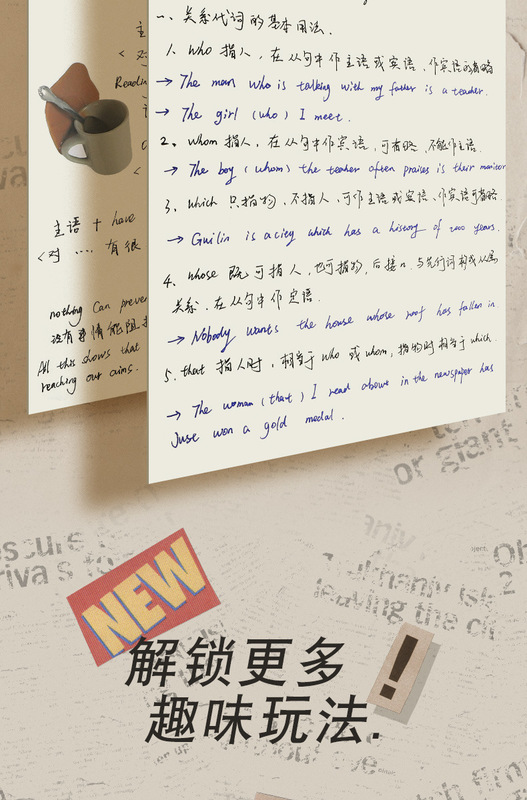 一、关系代词的基本用法.
1. who 指人，在从句中作主语或宾语，作宾语可省略
→ The man who is talking with my father is a teacher.
→ The girl (who) I meet.
2、whom 指人，在从句中作宾语，可省略，不能作主语.
→ The boy (whom) the teacher often praises is their monitor
3、which 只指物，不指人，可作主语或宾语、作宾语可省略
→ Guilin is a city which has a history of 2000 years.
4、whose 既可指人，也可指物，后接n. 与先行词构成从属
关系. 在从句中作定语.
→ Nobody wants the house whose roof has fallen in.
5、that 指人时，相当于 who 或 whom，指物时相当于 which.
→ The woman (that) I read about in the newspaper has
Just won a gold medal.
主
< 对
Readin
主语 + have
<对 .... 有很
nothing can preve
没有事情能阻
All this shows that
reaching our aims.
or giant
leaving the ci
NEW
解锁更多
趣味玩法.
!